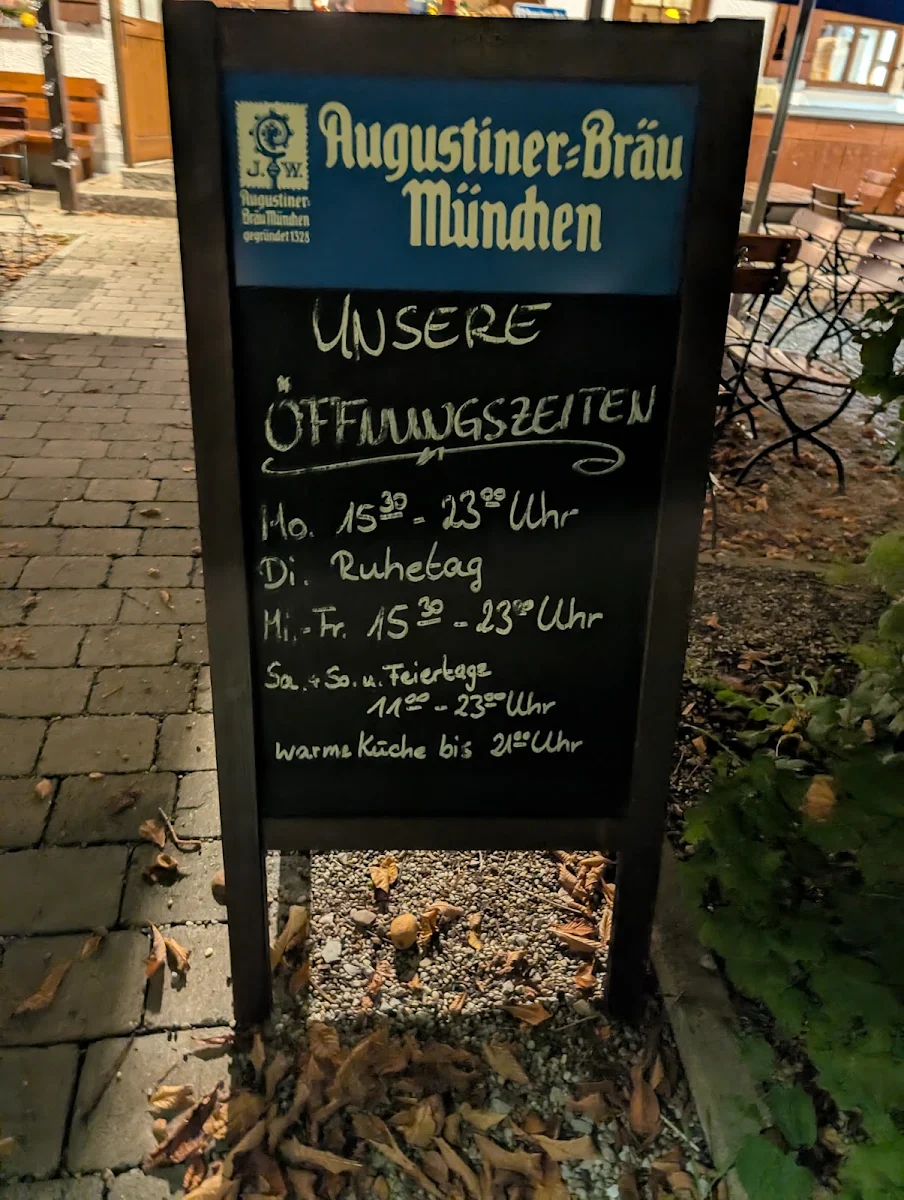 J. W.
Augustiner-
Bräu München
gegründet 1328
Augustiner-Bräu
München
UNSERE
ÖFFNUNGSZEITEN
Mo. 15³⁰ - 23⁰⁰ Uhr
Di. Ruhetag
Mi.-Fr. 15³⁰ - 23⁰⁰ Uhr
Sa. + So. u. Feiertage
11⁰⁰ - 23⁰⁰ Uhr
warme Küche bis 21⁰⁰ Uhr